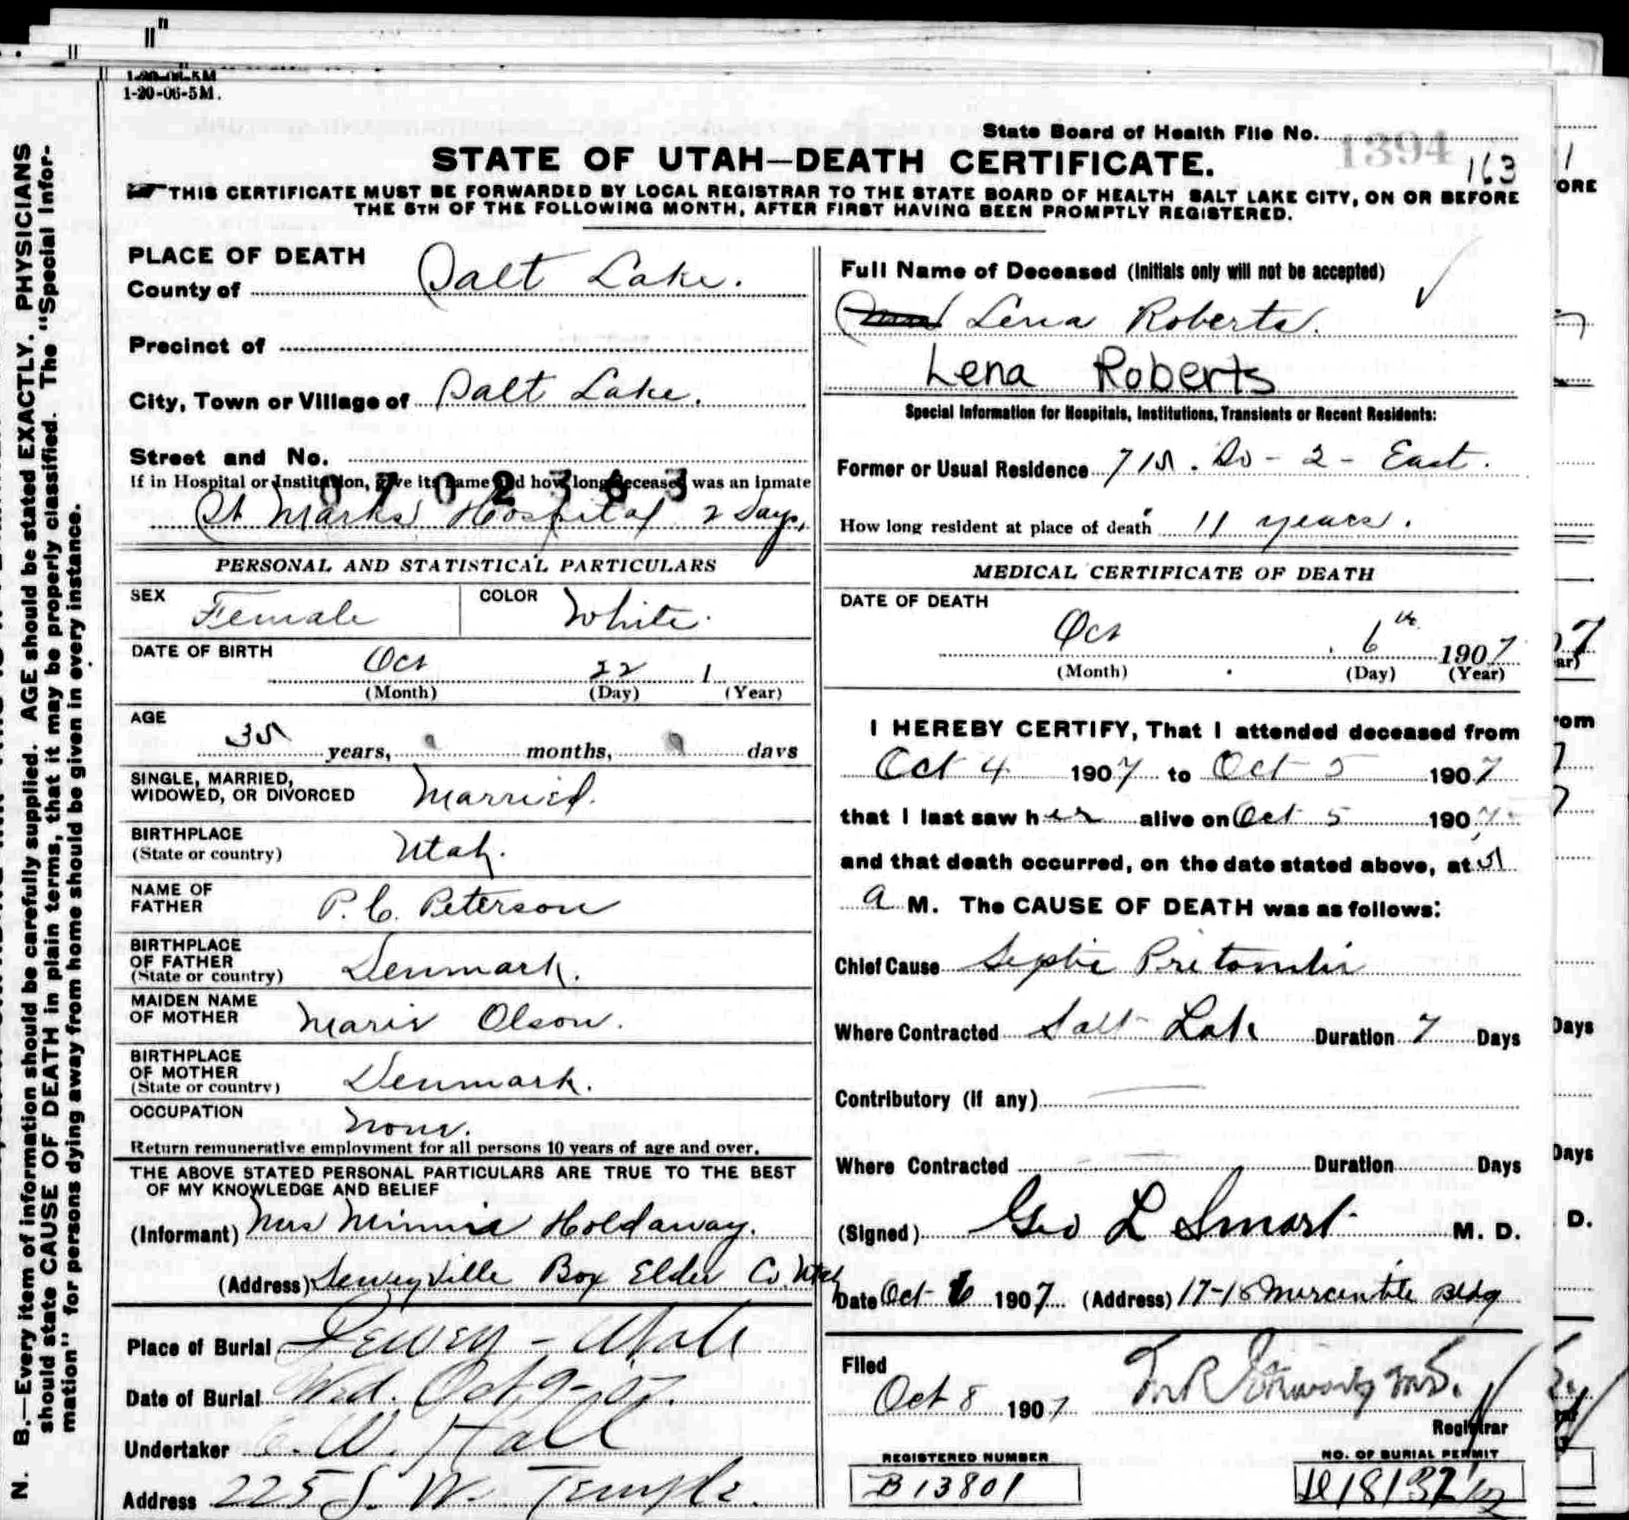 1-20-06-5M.
State Board of Health File No. 1394
163
STATE OF UTAH—DEATH CERTIFICATE.
THIS CERTIFICATE MUST BE FORWARDED BY LOCAL REGISTRAR TO THE STATE BOARD OF HEALTH SALT LAKE CITY, ON OR BEFORE
THE 5TH OF THE FOLLOWING MONTH, AFTER FIRST HAVING BEEN PROMPTLY REGISTERED.
N. B.—Every item of information should be carefully supplied. AGE should be stated EXACTLY. PHYSICIANS
should state CAUSE OF DEATH in plain terms, that it may be properly classified. The "Special Infor-
mation" for persons dying away from home should be given in every instance.
PLACE OF DEATH
County of Salt Lake.
Precinct of
City, Town or Village of Salt Lake.
Street and No.
0702363
If in Hospital or Institution, give its name and how long deceased was an inmate
St Marks Hospital 2 Days,
PERSONAL AND STATISTICAL PARTICULARS
SEX Female COLOR White.
DATE OF BIRTH
Oct 22 1
(Month) (Day) (Year)
AGE
35 years, months, days
SINGLE, MARRIED,
WIDOWED, OR DIVORCED Married.
BIRTHPLACE
(State or country) Utah.
NAME OF
FATHER P. C. Peterson
BIRTHPLACE
OF FATHER
(State or country) Denmark.
MAIDEN NAME
OF MOTHER Marie Olson.
BIRTHPLACE
OF MOTHER
(State or country) Denmark.
OCCUPATION None.
Return remunerative employment for all persons 10 years of age and over.
THE ABOVE STATED PERSONAL PARTICULARS ARE TRUE TO THE BEST
OF MY KNOWLEDGE AND BELIEF
(Informant) Mrs Minnie Holdaway.
(Address) Deweyville Box Elder Co. Utah
Place of Burial Dewey - Utah
Date of Burial Wed. Oct, 9-07.
Undertaker W. Hall
Address 225 S. W. Temple.
Full Name of Deceased (Initials only will not be accepted)
Lena Roberts.
Lena Roberts
Special Information for Hospitals, Institutions, Transients or Recent Residents:
Former or Usual Residence 715. So - 2 - East.
How long resident at place of death 11 years.
MEDICAL CERTIFICATE OF DEATH
DATE OF DEATH
Oct 6th 1907
(Month) (Day) (Year)
I HEREBY CERTIFY, That I attended deceased from
Oct 4 1907 to Oct 5 1907
that I last saw her alive on Oct 5 1907
and that death occurred, on the date stated above, at 5
a M. The CAUSE OF DEATH was as follows:
Chief Cause Septic Pritonitis
Where Contracted Salt Lake Duration 7 Days
Contributory (if any)
Where Contracted Duration Days
(Signed) Geo L Smart M. D.
Date Oct 6 1907 (Address) 17-18 Mercantile Bldg
Filed
Oct 8 1907
Registrar
REGISTERED NUMBER
B13801
NO. OF BURIAL PERMIT